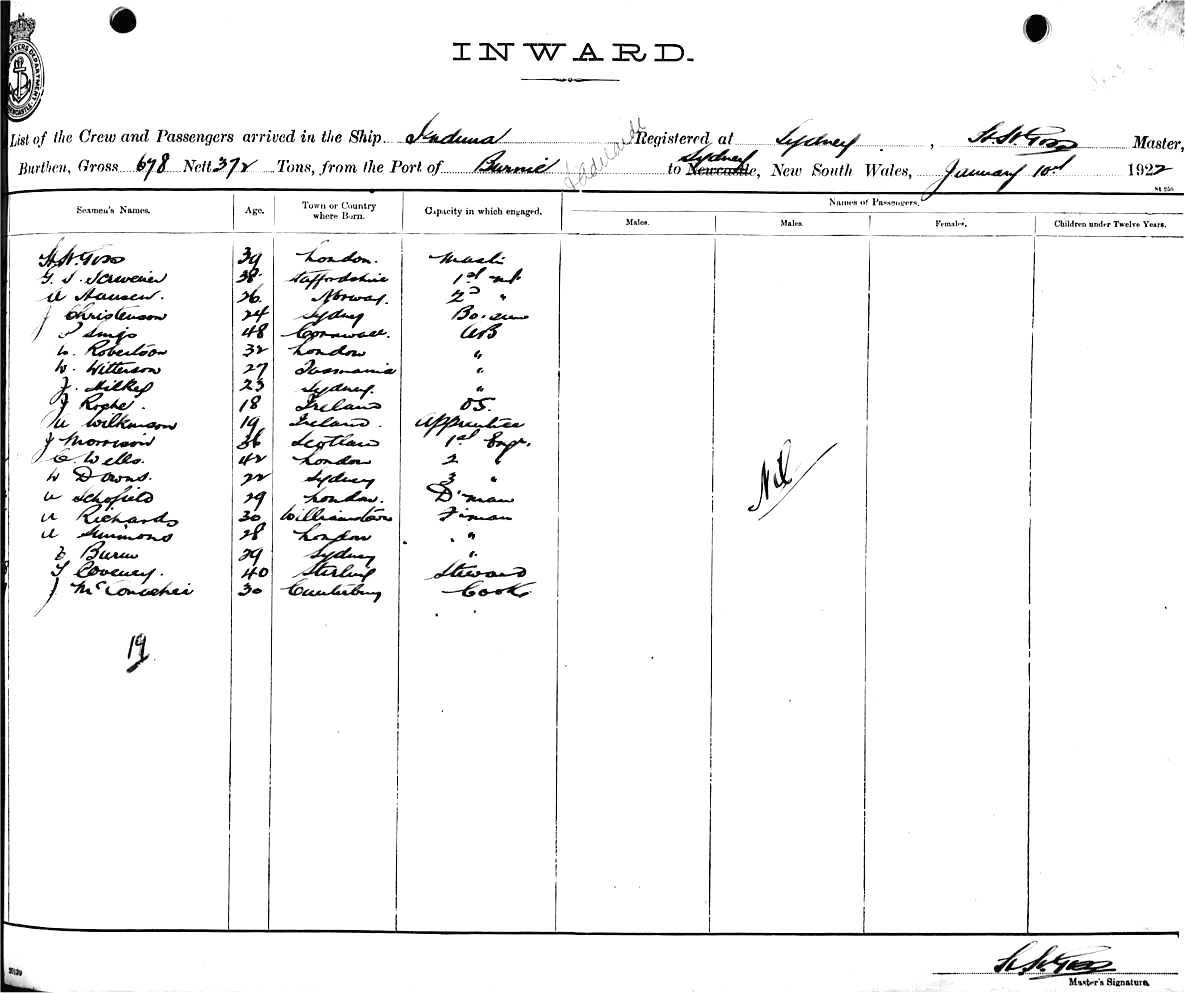 INWARD.
List of the Crew and Passengers arrived in the Ship Induna Registered at Sydney, Master,
Burthen, Gross 678 Nett 372 Tons, from the Port of Burnie to Newcastle, Sydney New South Wales, January 10 1922
Names of Passengers.
Seamen's Names. Age. Town or Country where Born. Capacity in which engaged. Males. Males. Females. Children under Twelve Years.
39 London.
38 Staffordshire 1st
Hansen. 26 Norway. 2nd "
J Christenson 24 Sydney
48 Cornwall. AB
Robertson 32 London "
W. Witterson 27 Tasmania "
J. 23 Sydney. "
J Roche. 18 Ireland OS.
Wilkinson 19 Ireland. Apprentice
J Morrison 36 Scotland 1st Engr.
C. Wells. 42 London 2 "
W Downs. 22 Sydney 3 "
A Schofield 29 London. D'man
A Richards 30 Williamstown Fiman
A Simmons 28 London "
29 Sydney "
Coveney. 40 Stirling Steward
J 30 Canterbury Cook
Nil
19
Master's Signature.